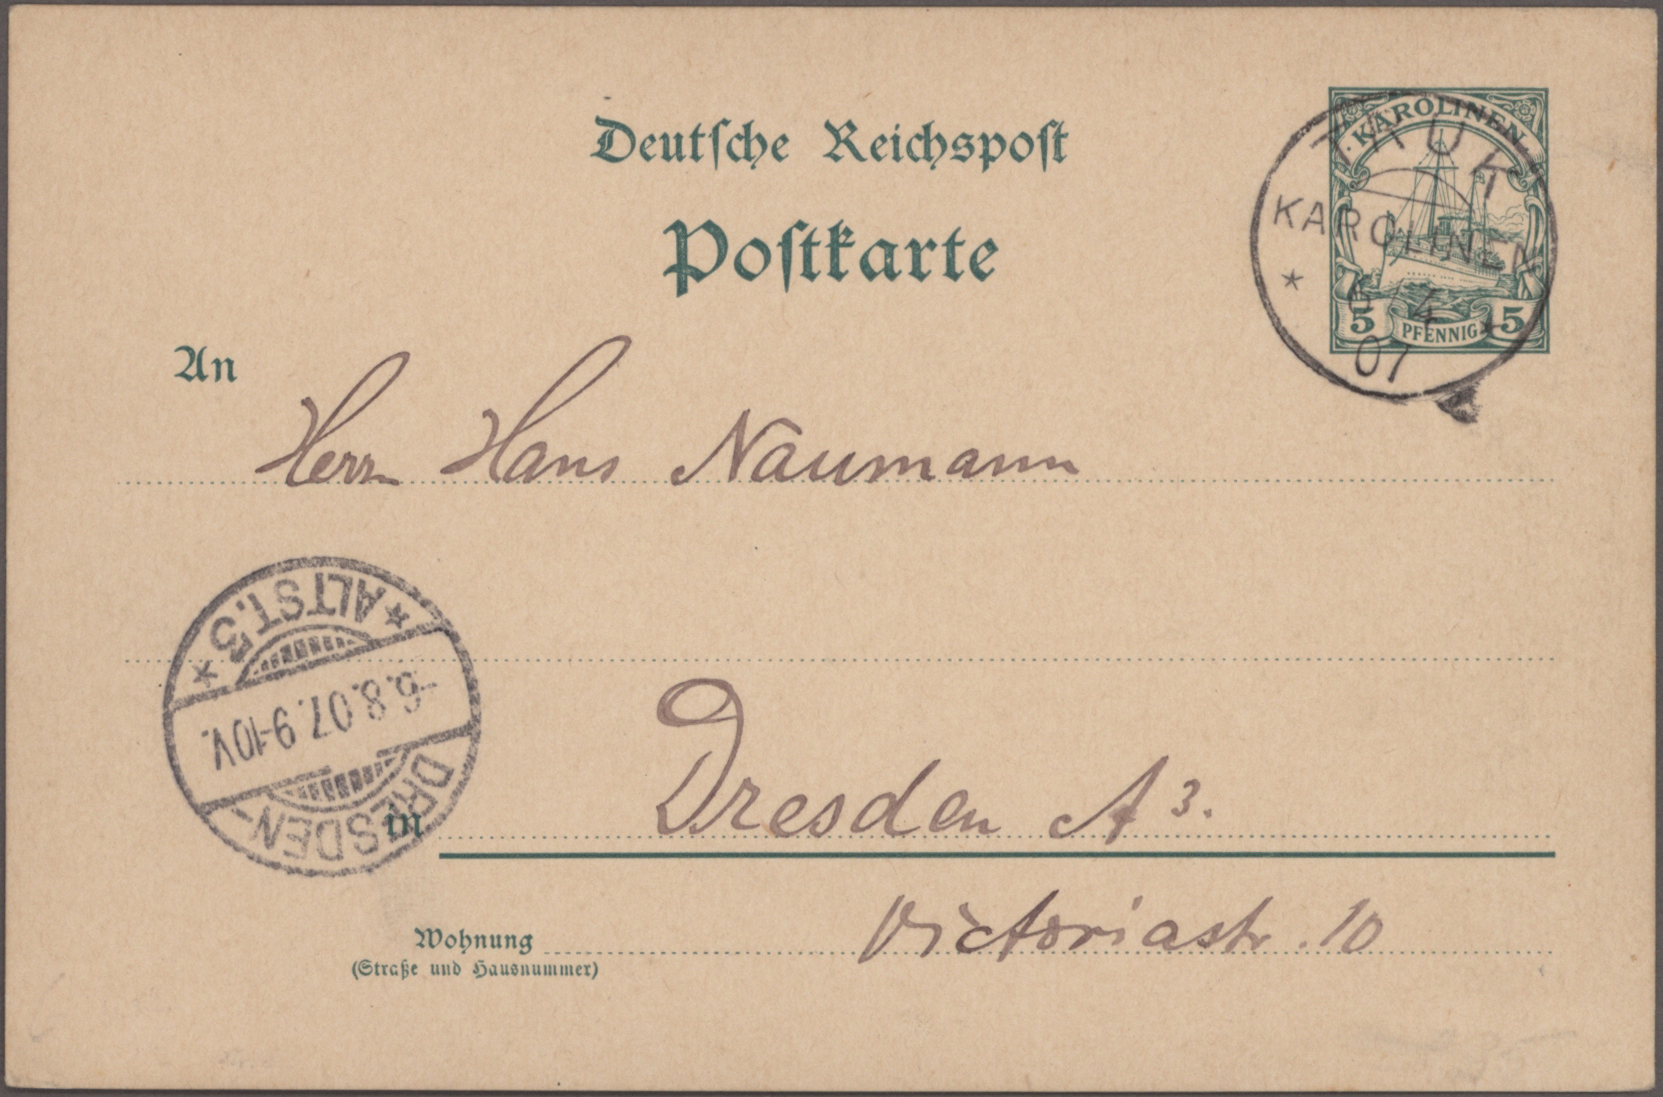 Deutsche Reichspost
Postkarte
KAROLINEN
5 PFENNIG 5
TRUK
KAROLINEN
* 6 4 *
07
An
Herrn Hans Naumann
* ALTST. 3 *
-6.8.07. 9-10V.
DRESDEN-
in
Dresden A 3.
Wohnung
(Straße und Hausnummer)
Victoriastr. 10